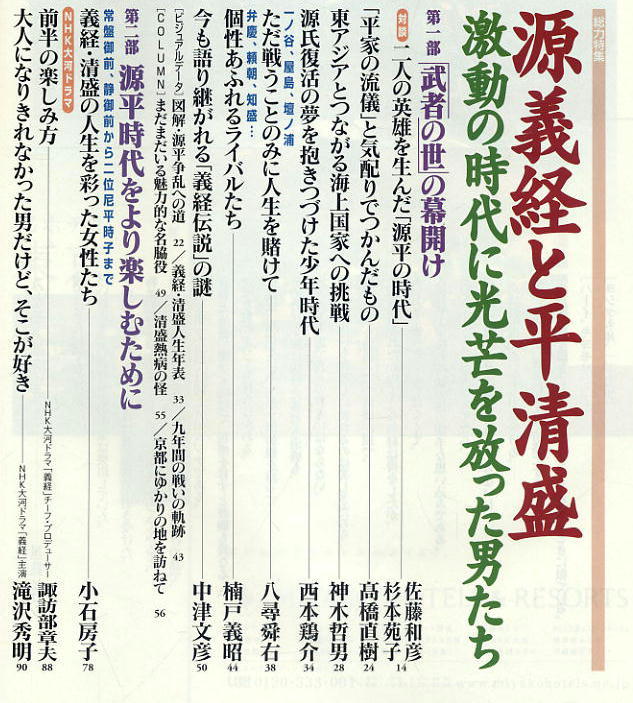 総力特集
源義経と平清盛
激動の時代に光芒を放った男たち
第一部 「武者の世」の幕開け
対談 二人の英雄を生んだ「源平の時代」 佐藤和彦 杉本苑子 14
「平家の流儀」と気配りでつかんだもの 高橋直樹 24
東アジアとつながる海上国家への挑戦 神木哲男 28
源氏復活の夢を抱きつづけた少年時代 西本鶏介 34
一ノ谷、屋島、壇ノ浦
ただ戦うことのみに人生を賭けて 八尋舜右 38
弁慶、頼朝、知盛…
個性あふれるライバルたち 楠戸義昭 44
今も語り継がれる「義経伝説」の謎 中津文彦 50
[ビジュアルデータ] 図解・源平争乱への道 22/義経・清盛人生年表 33/九年間の戦いの軌跡 43
[COLUMN] まだまだいる魅力的な名脇役 49/清盛熱病の怪 55/京都にゆかりの地を訪ねて 56
第二部 源平時代をより楽しむために
常盤御前、静御前から二位尼平時子まで
義経・清盛の人生を彩った女性たち 小石房子 78
NHK大河ドラマ
前半の楽しみ方 NHK大河ドラマ「義経」チーフ・プロデューサー 諏訪部章夫 88
大人になりきれなかった男だけど、そこが好き NHK大河ドラマ「義経」主演 滝沢秀明 90